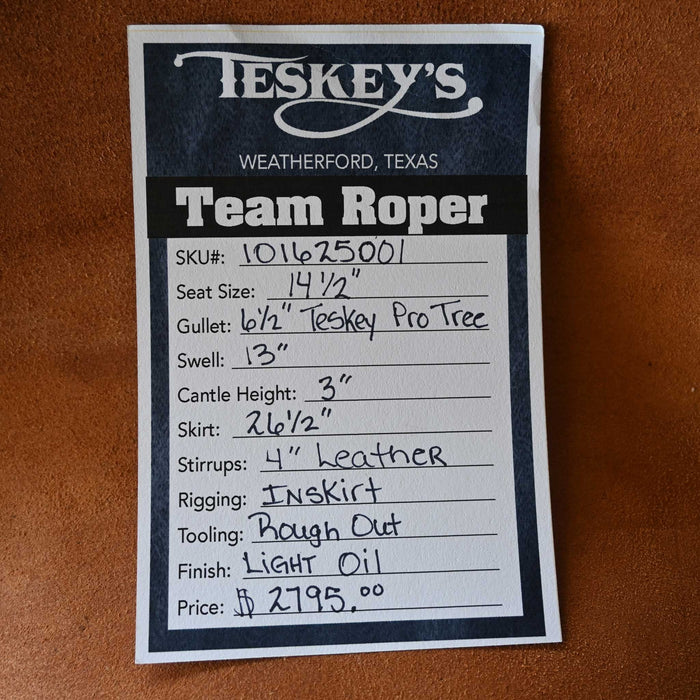 TESKEY'S
WEATHERFORD, TEXAS
Team Roper
SKU#: 101625001
Seat Size: 14 1/2"
Gullet: 6 1/2" Teskey Pro Tree
Swell: 13"
Cantle Height: 3"
Skirt: 26 1/2"
Stirrups: 4" Leather
Rigging: Inskirt
Tooling: Rough Out
Finish: Light Oil
Price: $ 2795.00